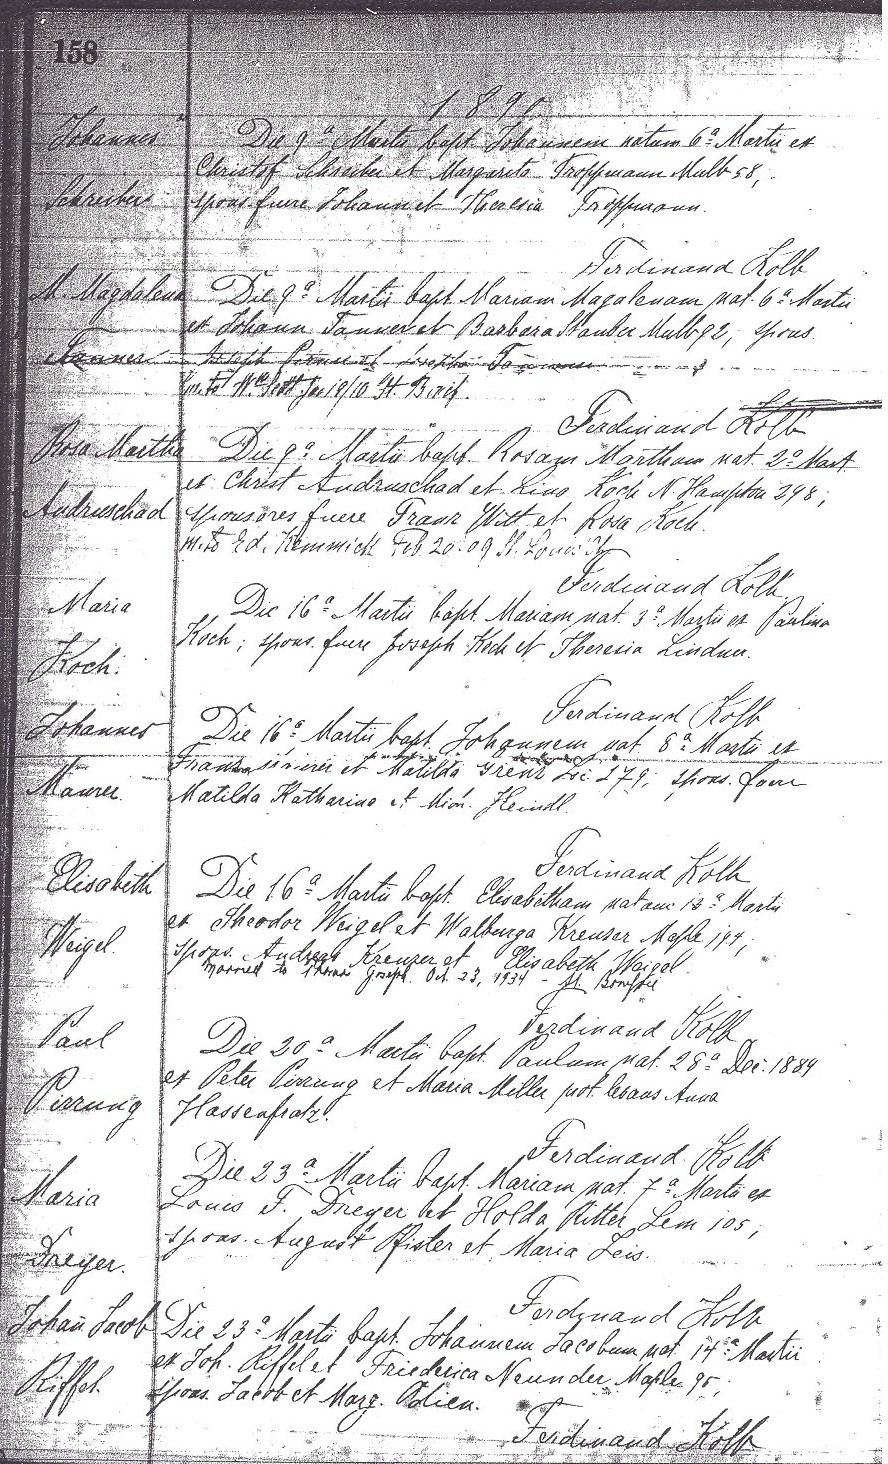 158
1890
Johannes Schreiber
Die 9ª Martii bapt. Johannem natum 6ª Martii ex
Christof Schreiber et Margarita Troppmann Mulb 58,
spons. fuere Johann et Theresia Troppmann.
Ferdinand Kolb
M. Magdalena Tanner
Die 9ª Martii bapt. Mariam Magalenam nat. 6ª Martii
ex Johann Tanner et Barbara Stauber Mulb 92, spons.
Joseph et Josepha
m. to Wm Scott Jan 19/10 St. Bonif.
Ferdinand Kolb
Rosa Martha Andruschad
Die 9ª Martii bapt. Rosam Martham nat. 2ª Mart.
ex Christ Andruschad et Lina Koch N Hampton 298;
sponsores fuere Franz Witt et Rosa Koch.
m. to Ed. Kemmick Feb 20. 09 St. Louis
Ferdinand Kolb
Maria Koch.
Die 16ª Martii bapt. Mariam nat. 3ª Martii ex Paulina
Koch; spons. fuere Joseph Koch et Theresia Lindner.
Ferdinand Kolb
Johannes Maurer
Die 16ª Martii bapt. Johannem nat. 8ª Martii ex
Franz et Matilda 279; spons. fuere
Matilda Katharina et Heindl.
Ferdinand Kolb
Elisabeth Weigel.
Die 16ª Martii bapt. Elisabetham natam Martii
ex Theodor Weigel et Walburga Kreuzer Maple 194;
spons. Andreas Kreuzer et Elisabeth Weigel.
married to Joseph Oct. 23, 1934 - St. Boniface
Ferdinand Kolb
Paul Pirrung
Die 20ª Martii bapt. Paulum nat. 28ª Dec. 1889
ex Peter Pirrung et Maria Miller prot. levans Anna
Hassenfratz.
Ferdinand Kolb
Maria Dreyer.
Die 23ª Martii bapt. Mariam nat. 7ª Martii ex
Louis F. Dreyer et Holda Ritter, Lem 105,
spons. August Pfister et Maria Leis.
Ferdinand Kolb
Johañ Jacob Riffel.
Die 23ª Martii bapt. Johannem Jacobum nat. 14ª Martii
ex Joh. Riffel et Friederica Neunder Maple 95,
spons. Jacob et Marg. Odien.
Ferdinand Kolb